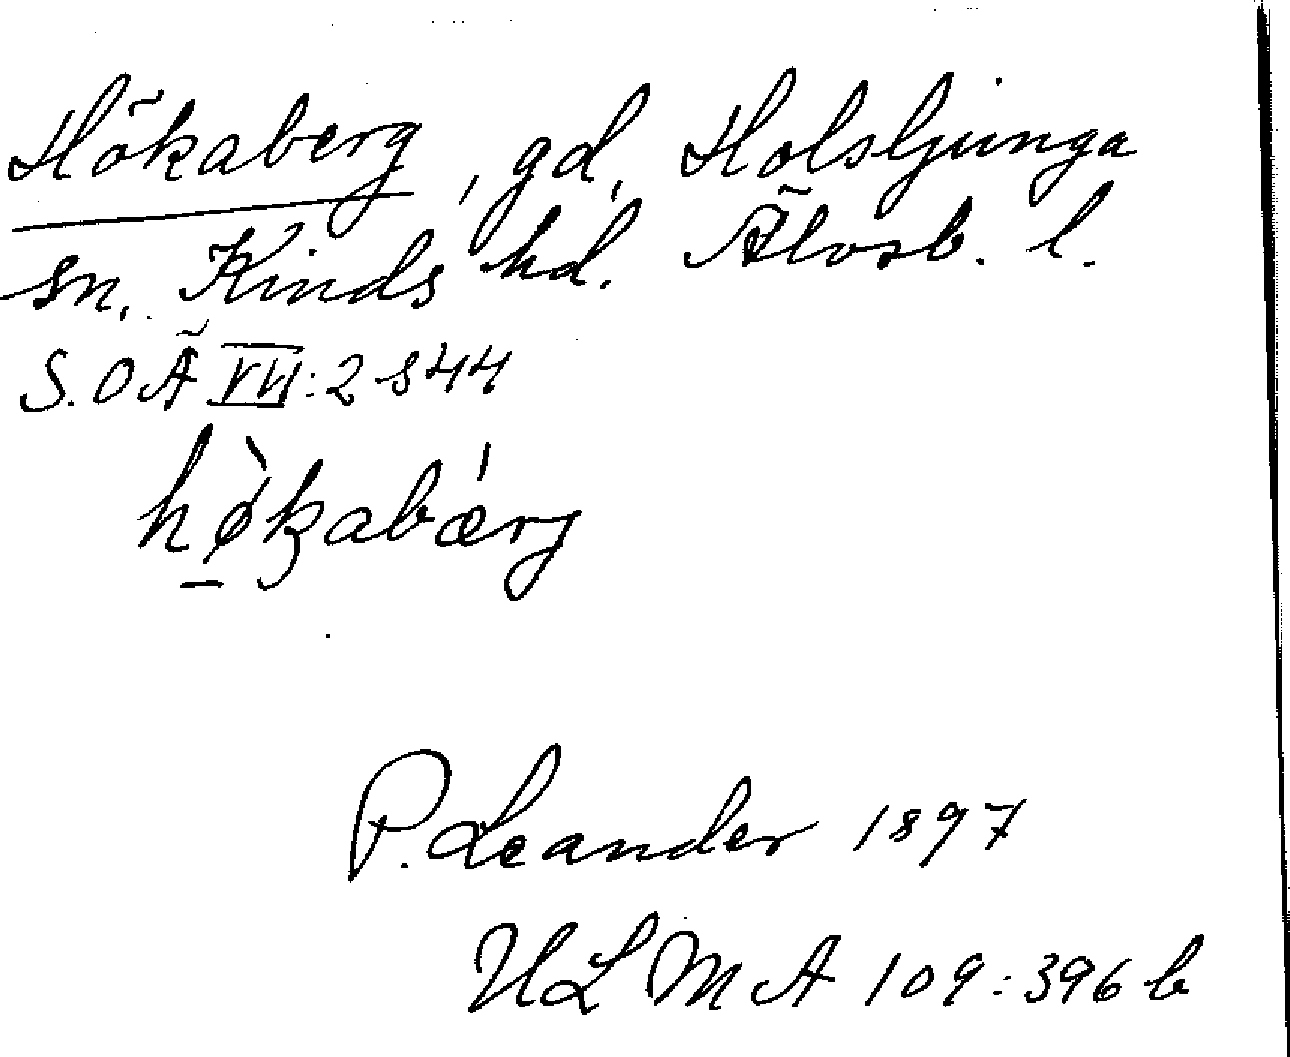 Hökaberg, gd, Holsljunga
sn. Kinds hd. Älvsb. l.
S.O Ä VII:2 s 44
hø̀kabǽrj
P. Leander 1897
ULMA 109:396 b